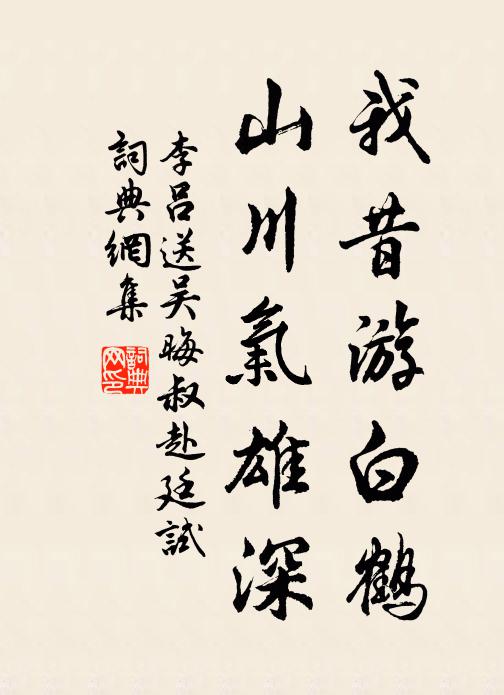 我昔游白鶴
山川氣雄深
李呂送吴晦叔赴廷試
詞典網集
詞典
网印